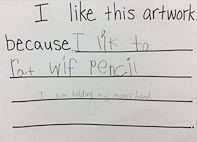 I like this artwork
because I lik to
rout wif pencil
I am holding my moms hand
.